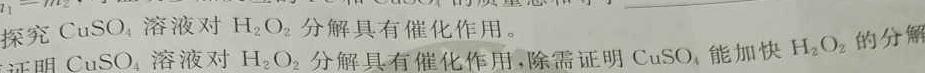 探究 CuSO₄ 溶液对 H₂O₂ 分解具有催化作用。
证明 CuSO₄ 溶液对 H₂O₂ 分解具有催化作用,除需证明 CuSO₄ 能加快 H₂O₂ 的分解